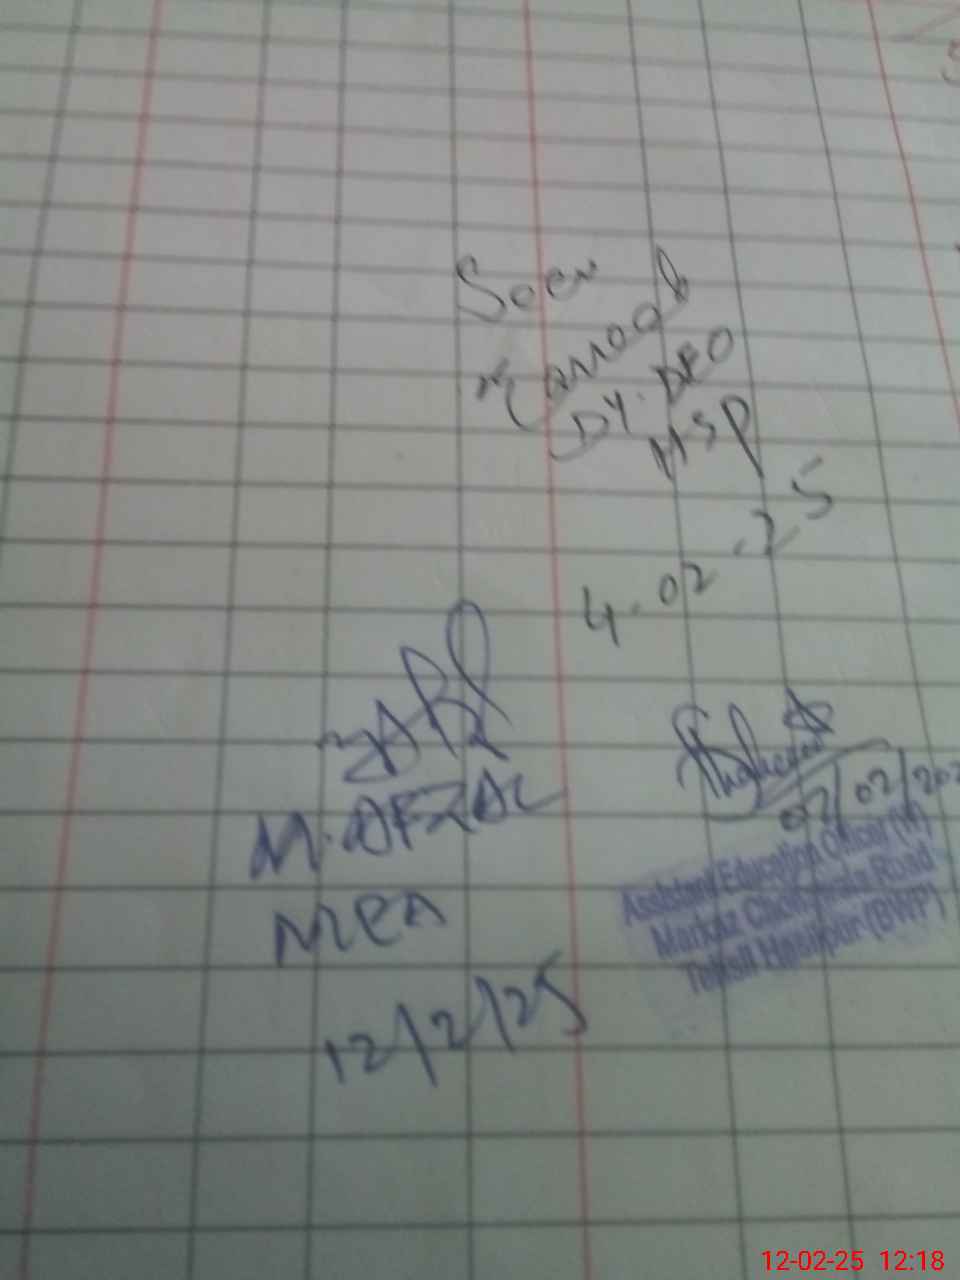 Seen
DY. DEO
HSP
4.02.25
M. AFZAL
MEA
12/2/25
02/02/202
Assistant Education Officer (M)
Markaz Road
Tehsil Hasilpur (BWP)
12-02-25 12:18